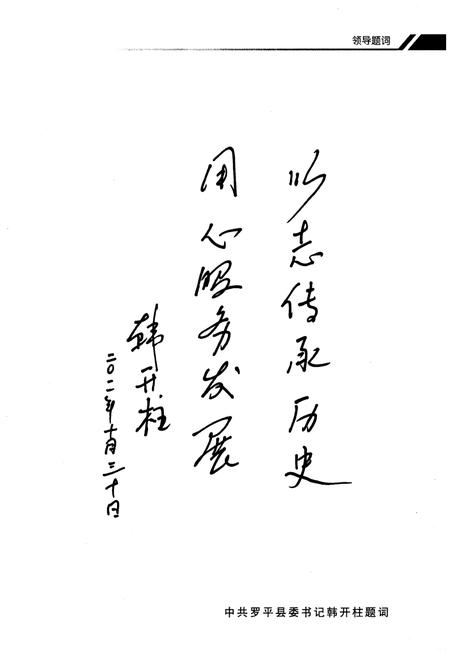 领导题词
以志传承历史
用心服务发展
韩开柱
二〇一二年十月三十日
中共罗平县委书记韩开柱题词